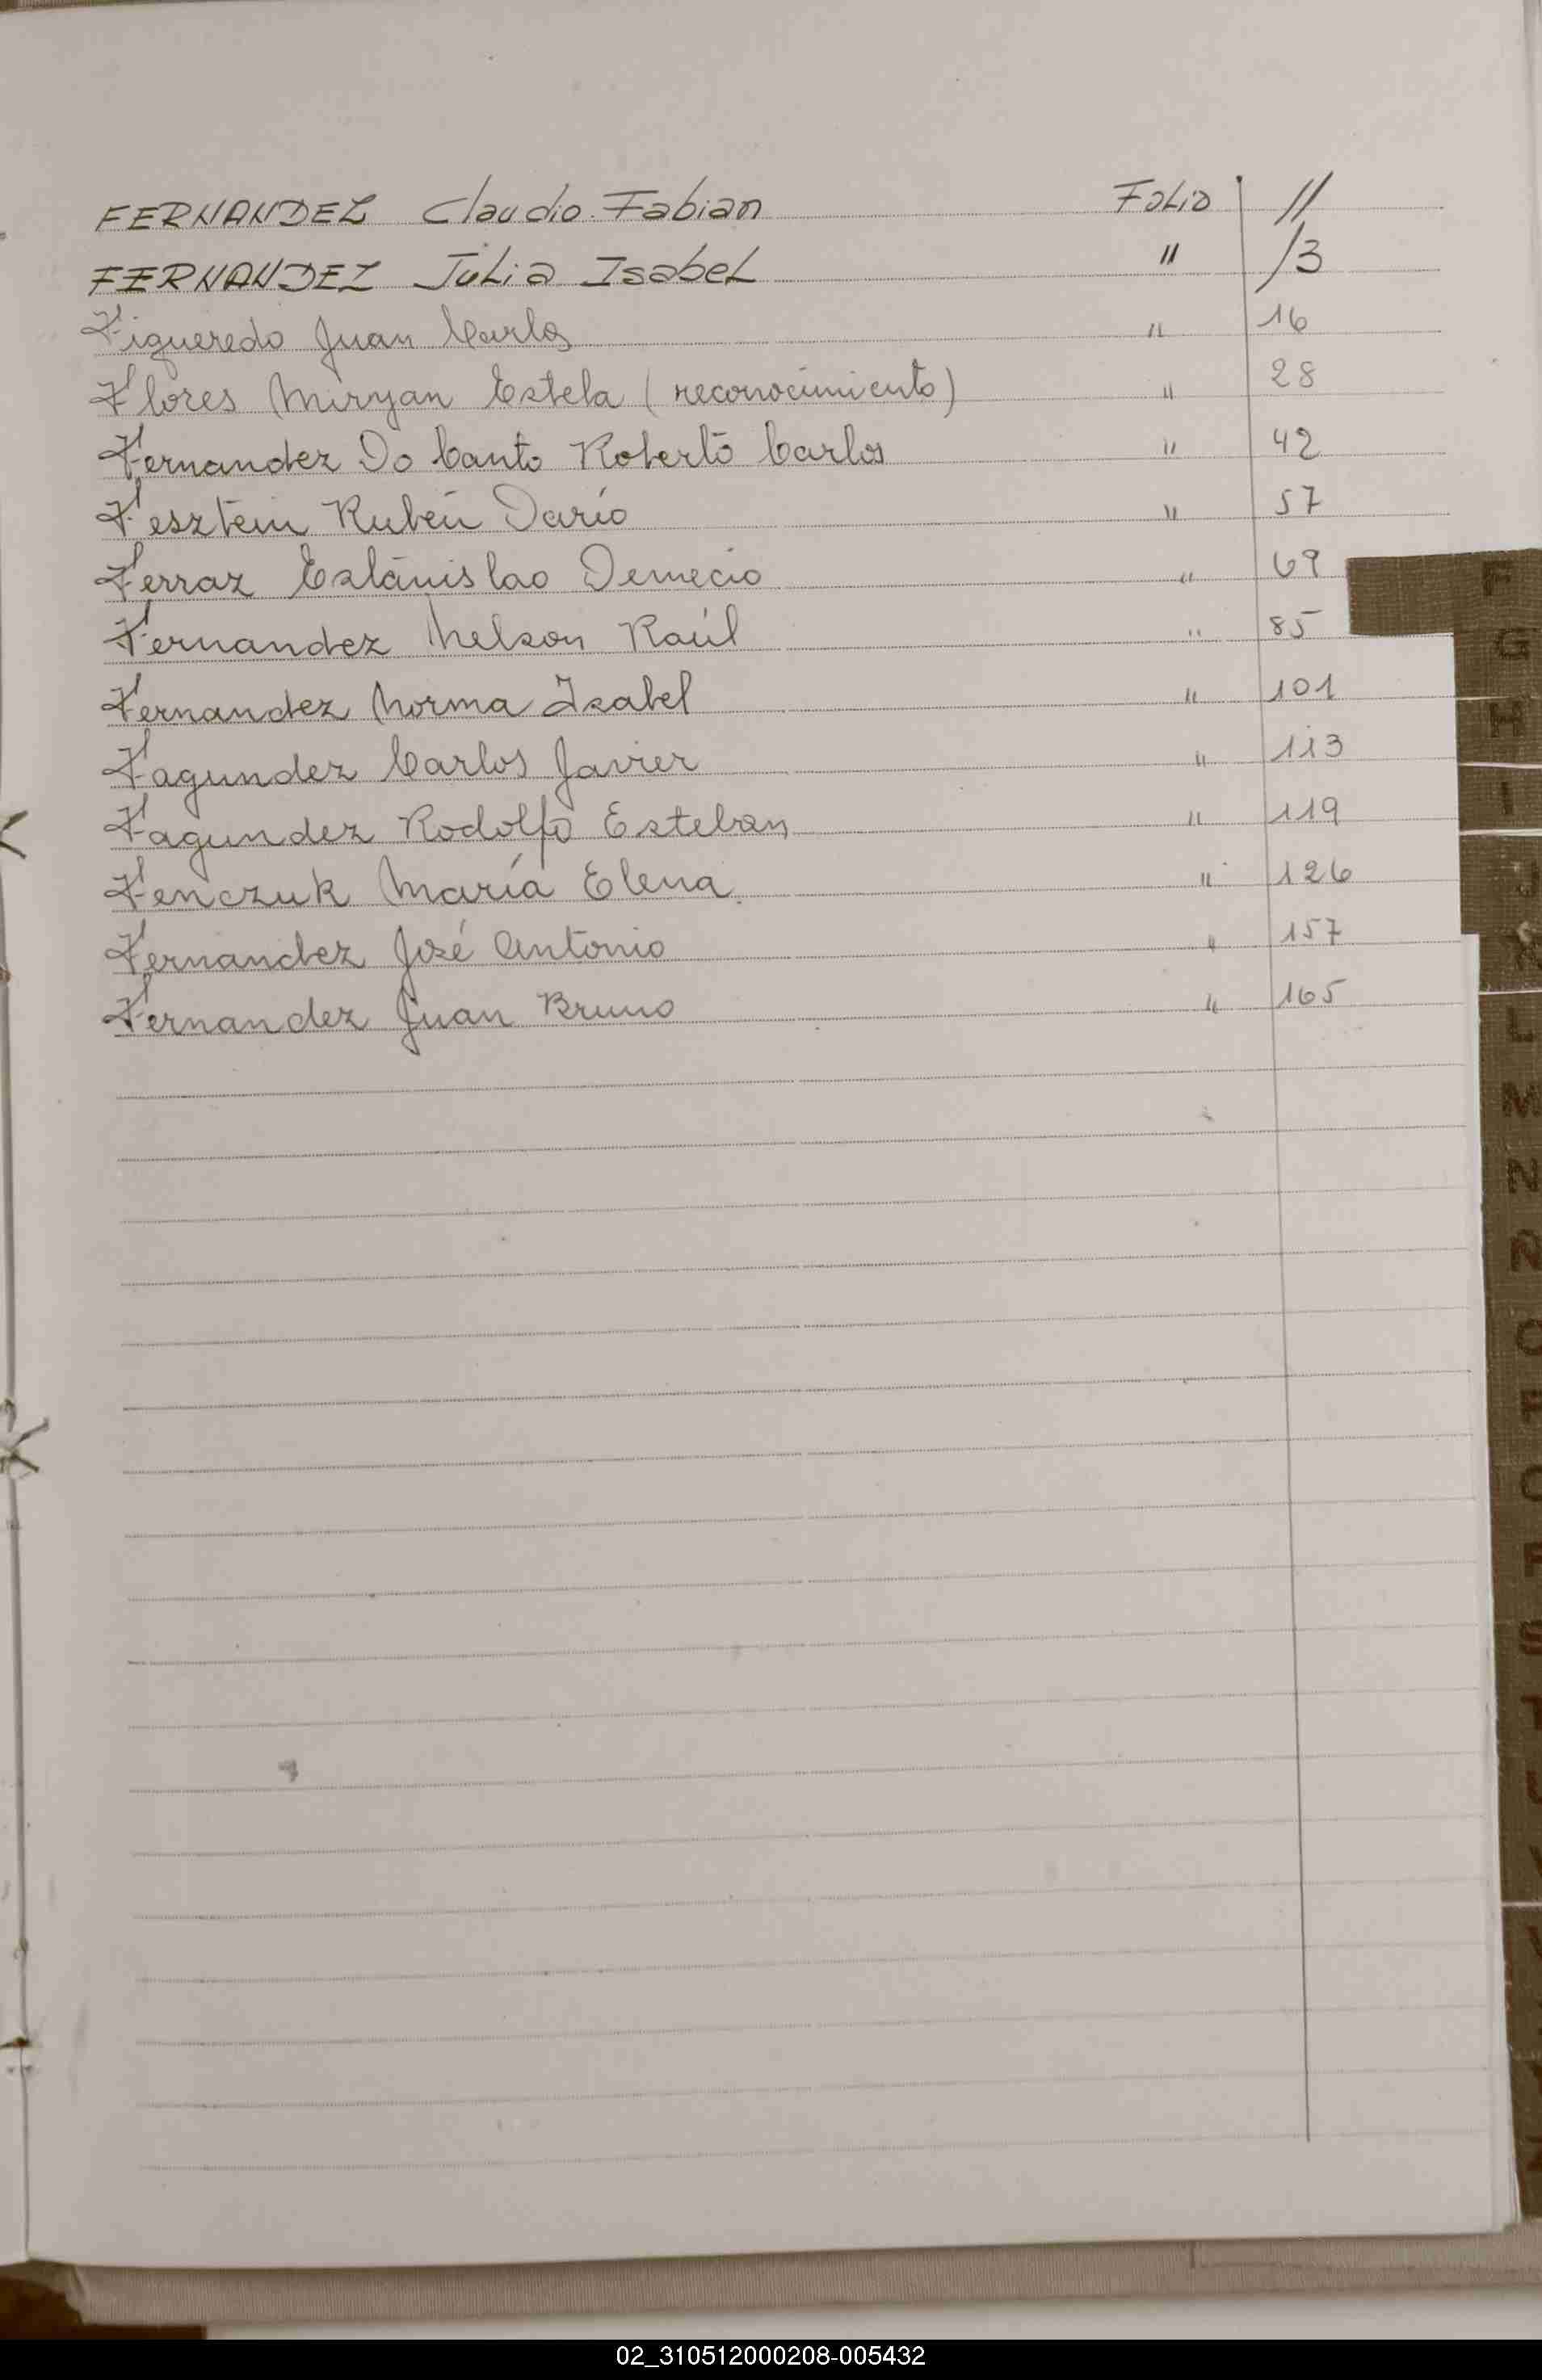 FERNANDEZ Claudio Fabian Folio 11
FERNANDEZ Julia Isabel " 13
Figueredo Juan Carlos " 16
Flores Miryan Estela (reconocimiento) " 28
Fernandez Do Canto Roberto Carlos " 42
Fesztein Rubén Darío " 57
Ferraz Estánislao Demecio " 69
Fernandez Nelson Raúl " 85
Fernandez Norma Isabel " 101
Fagundez Carlos Javier " 113
Fagundez Rodolfo Esteban " 119
Fenczuk María Elena " 126
Fernandez José Antonio " 157
Fernandez Juan Bruno " 165
F
G
H
I
L
M
N
02_310512000208-005432